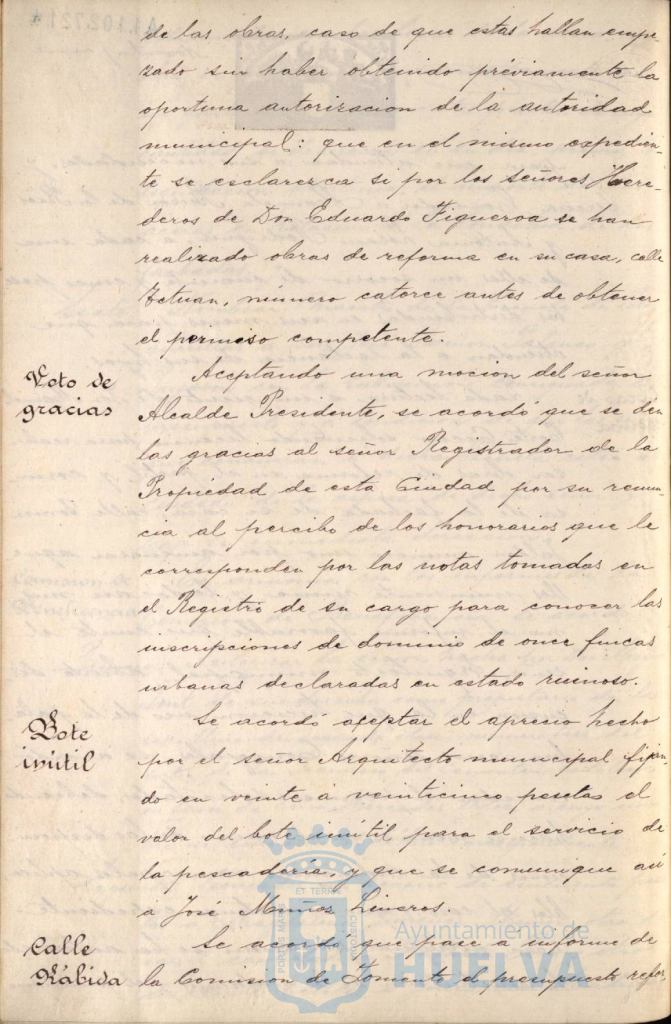 de las obras, caso de que estas hallan empe-
zado sin haber obtenido préviamente la
oportuna autorizacion de la autoridad
municipal: que en el mismo expedien-
te se esclarezca si por los señores Here-
deros de Don Eduardo Figueroa se han
realizado obras de reforma en su casa, calle
Tetuan, número catorce antes de obtener
el permiso competente.
Voto de
gracias
Aceptando una mocion del señor
Alcalde Presidente, se acordó que se den
las gracias al señor Registrador de la
Propiedad de esta Ciudad por su renun-
cia al percibo de los honorarios que le
corresponden por las notas tomadas en
el Registro de su cargo para conocer las
inscripciones de dominio de once fincas
urbanas declaradas en estado ruinoso.
Bote
inútil
Se acordó aceptar el aprecio hecho
por el señor Arquitecto municipal fijan-
do en veinte á veinticinco pesetas el
valor del bote inútil para el servicio de
la pescadería, y que se comunique así
á José Muñoz Lineros.
Calle
Rábida
Se acordó que pase a informe de
la Comision de Fomento el presupuesto refor-
Ayuntamiento de
HUELVA